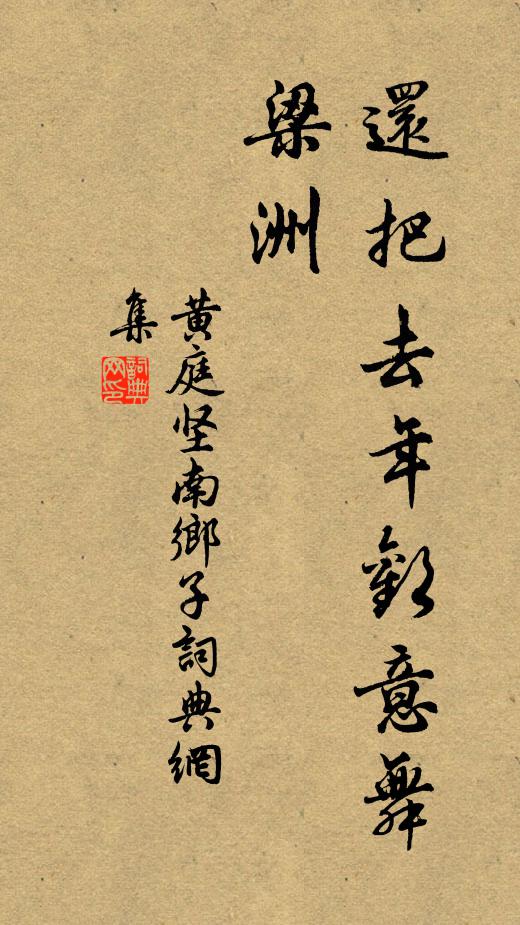 還把去年歡意舞
梁洲
黄庭坚南鄉子詞典網
集
詞典
网印